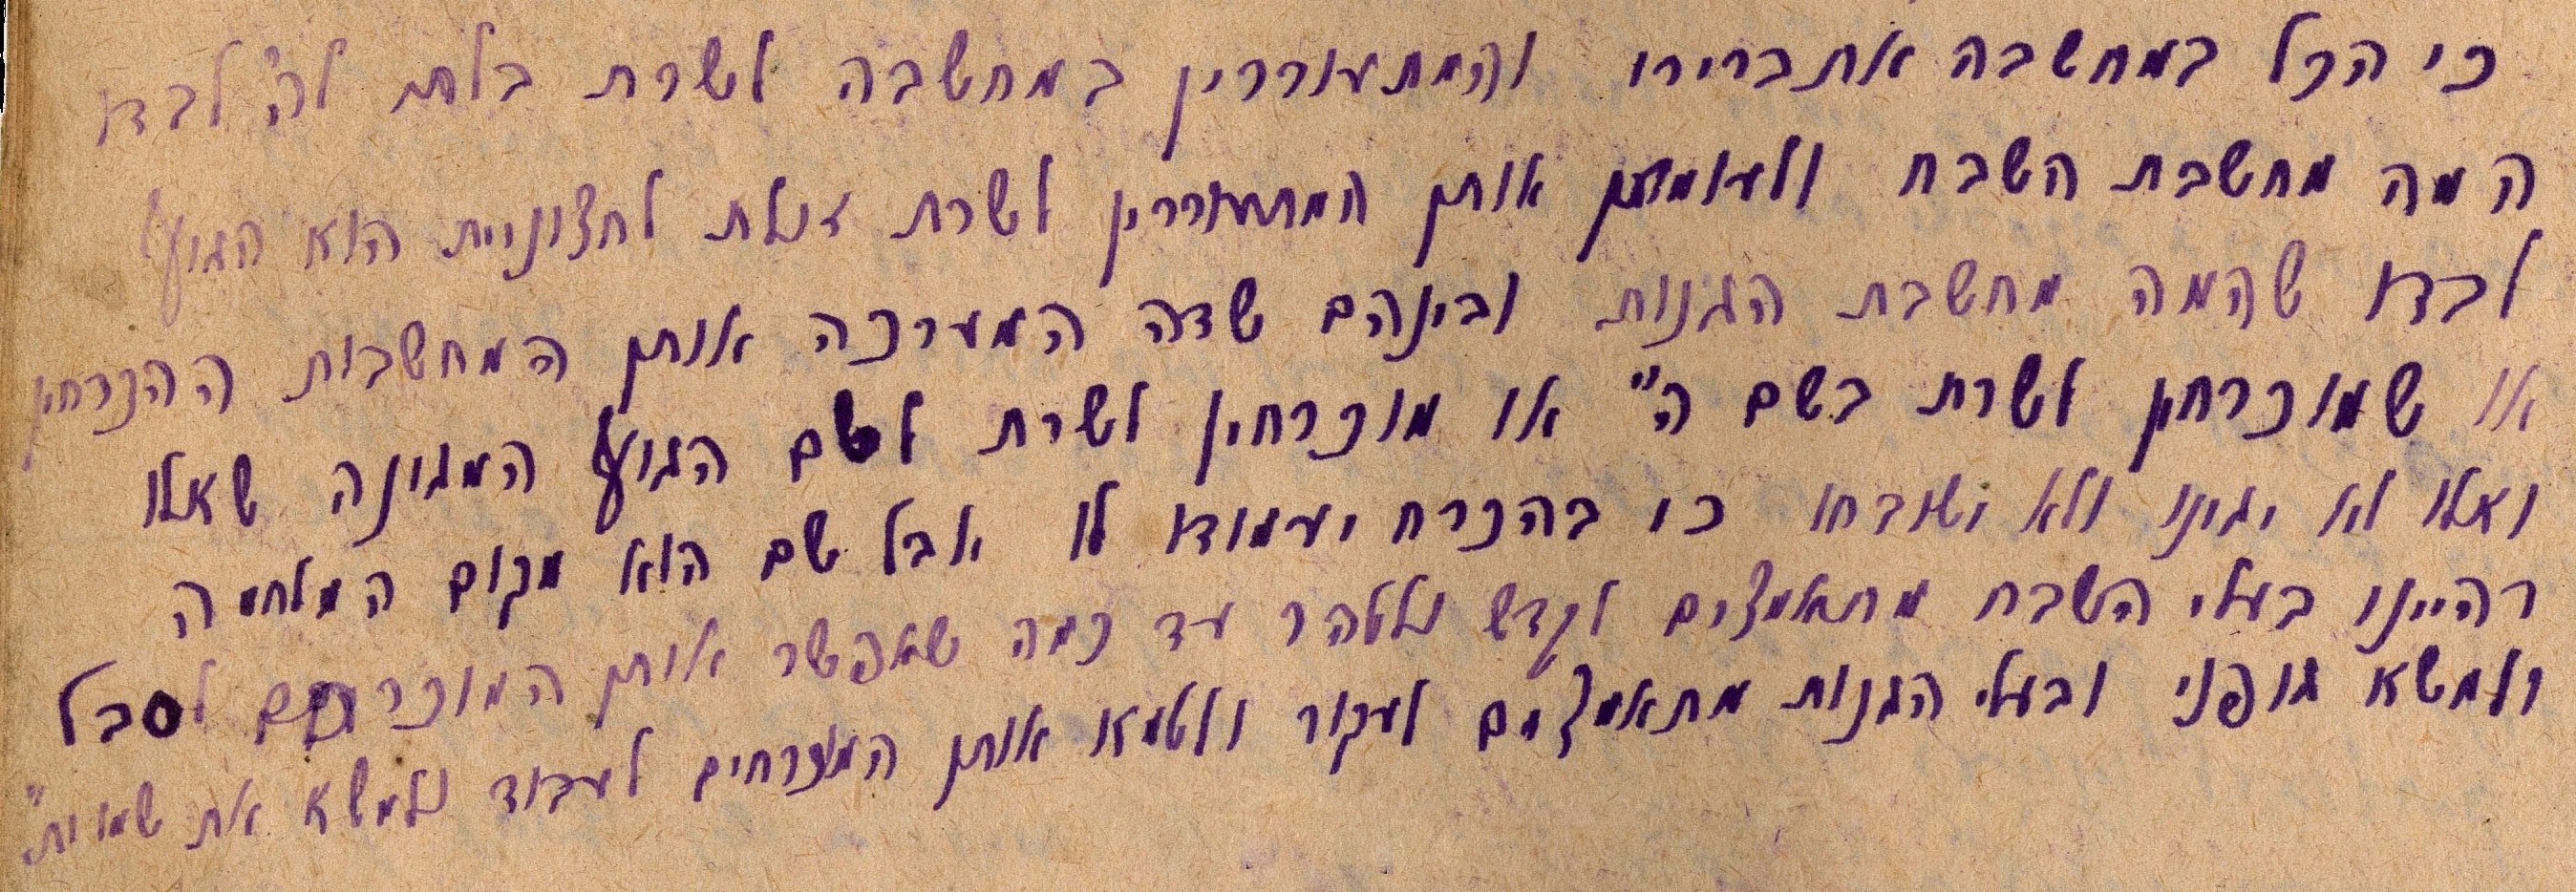 כי הכל במחשבה אתברירו והמתעוררין במחשבה לשרת בלתי לה' לבדו
המה מחשבת השבח ולעומתן אותן המתעוררין לשרת זולת לחצוניית הוא הגוף
לבדו שהמה מחשבת הגנות וביניהם שדה המערכה אותן המחשבות ההכרחין
או שמוכרחין לשרת בשם ה" או מוכרחין לשרת לשם הגוף המגונה שאלו
ואלו לא יגינו ולא ישובחו כי בהכרח יעמודו לו אבל שם הוא מקום המלחמה
דהיינו בעלי השבח מתאמצים לקדש ולטהר עד כמה שאפשר אותן המוכרחים לסבל
ולמשא גופני ובעלי הגנות מתאמצים לעקור ולטמא אותן המוכרחים לעבוד ולמשא את